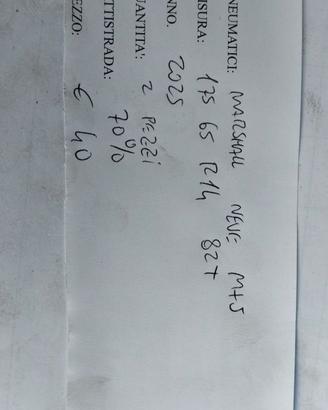 NEUMATICI: MARSHALL NEVE M+S
ISURA: 175 65 R14 82T
NNO. 2025
UANTITA': 2 PEZZI
TTISTRADA: 70%
EZZO: € 40